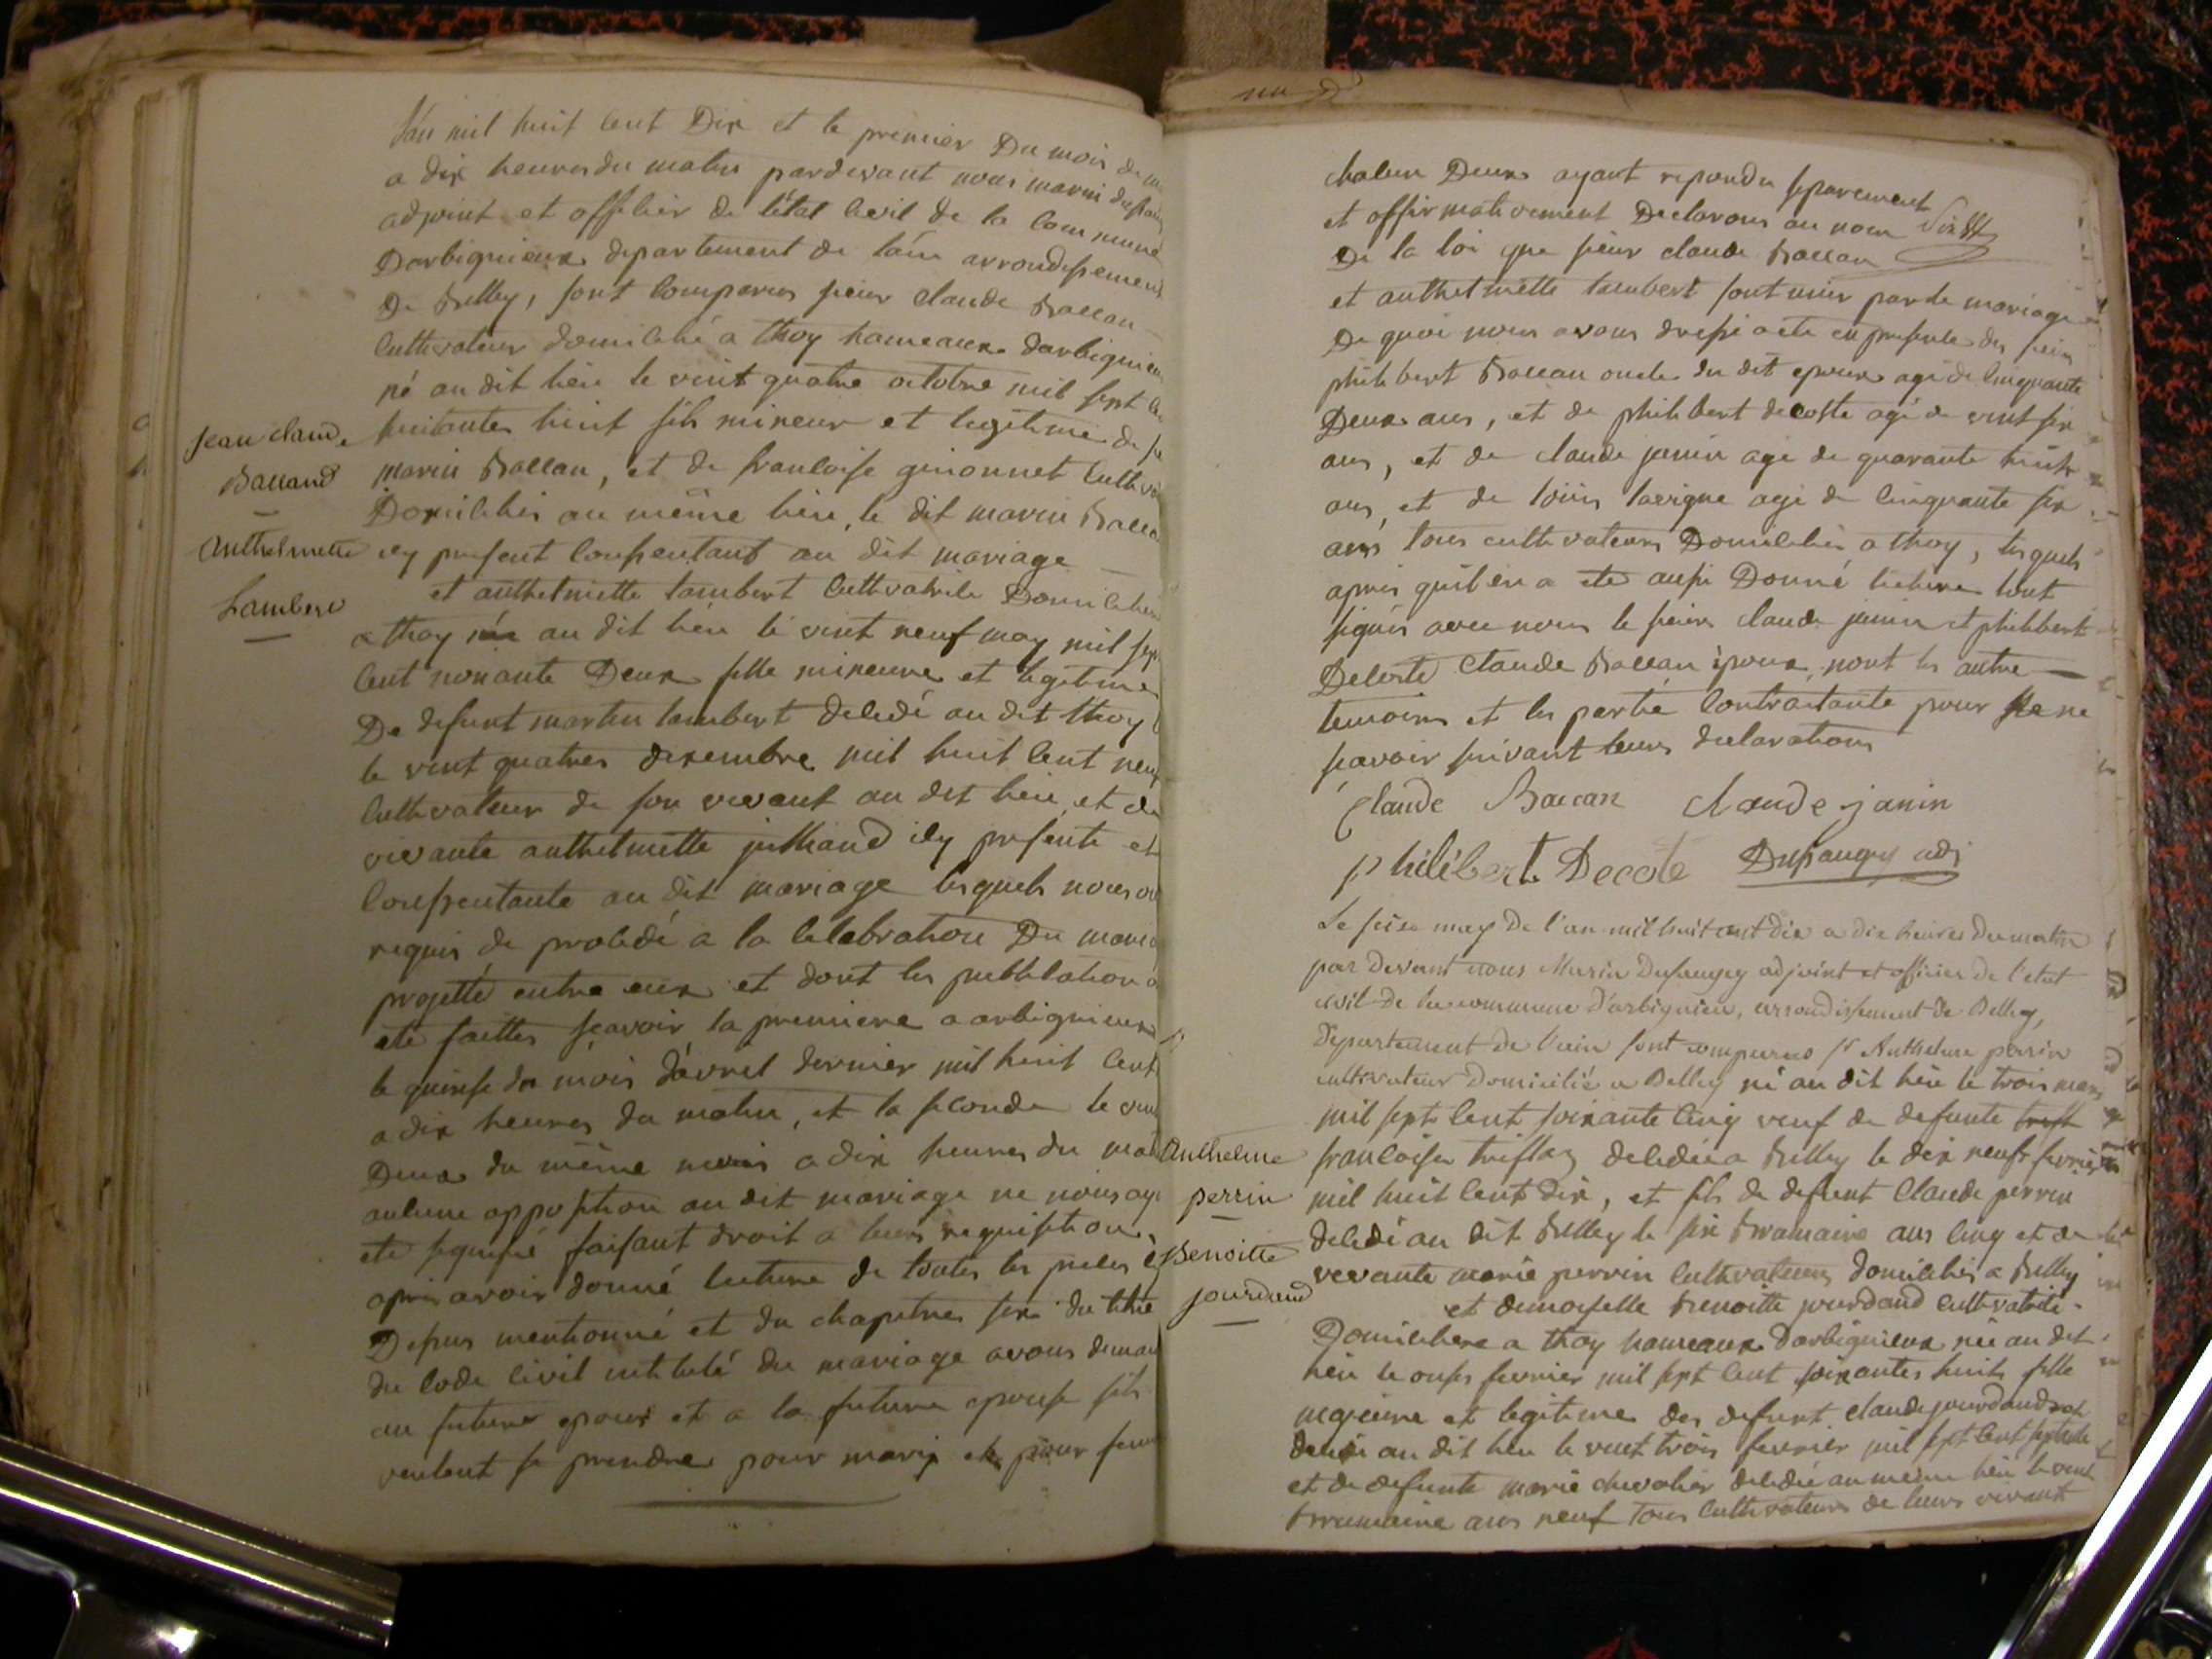 L'an mil huit cent Dix et le premier Du mois de
a dix heures du matin pardevant nous marin
adjoint et officier de l'état civil de la commune
Darbignieux departement de l'ain arrondissement
De Belley, sont comparus sieur claude Baccan
cultivateur domicilié a thoy hameaux darbignieux
né au dit lieu le vint quatre octobre mil sept
huitantes huit fils mineur et legitime de
marin Baccan, et de francoise ginonnet
Domiciliés au même lieu, le dit marin
icy present consentant au dit mariage
et anthelmette lambert cultivatrice Domiciliée
a thoy née au dit lieu le vint neuf may mil sept
cent nonante Deux fille mineure et legitime
De defunt martin lambert decedé au dit thoy
le vint quatres decembre mil huit cent neuf
cultivateur de son vivant au dit lieu et de
vivante anthelmette julliand icy presente et
consentante au dit mariage lesquels nous
requis de procedé a la celebration Du
projetté entre eux et dont les publication
ete faittes scavoir la premiere a arbignieux
le quinse du mois d'avril dernier mil huit cent
a dix heures du matin, et la seconde le
Deux du même mois a dix heures du
aucune opposition au dit mariage ne nous
ete signifié faisant droit a leurs requisition
apres avoir donné lecture de toutes les pieces
Depus mentionné et du chapitres six du titre
du code civil intitulé du mariage avons
au future epoux et a la future epouse sils
veulent se prendre pour mary et pour
Jean claude
Baccand
Anthelmette
Lambert
chacun Deux ayant repondu separement
et affirmativement Declarons au nom
De la loi que sieur claude Baccan
et anthelmette lambert sont unis par le mariage
De quoi nous avons dressé acte en presence des sieurs
philibert Baccan oncle du dit epoux agé de cinquante
Deux ans, et de philibert decotte agé de vint six
ans, et de claude janin agé de quarante huit
ans, et de loüis lavigne agé de cinquante six
ans tous cultivateurs Domiciliés a thoy, lesquels
apres quil en a ete aussi Donné lecture tout
signés avec nous le sieurs claude janin et philibert
Decoste claude Baccan epoux, nont les autre
temoins et les partie contractante pour ne
scavoir suivant leurs declarations
Claude Baccan claude janin
philibert Decote Dusaugey adj
Le seise may de l'an mil huit cent dix a dix heures du matin
par devant nous Marin Dusaugey adjoint et officier de l'etat
civil de la commune d'arbignieu, arrondissement de Belley,
Departement de l'ain sont comparus sr Anthelme perrin
cultivateur Domicilié a Belley né au dit lieu le trois mars
mil sept cent soixante cinq veuf de defunte
francoise decedée a Belley le dix neuf fevrier
mil huit cent dix, et fils de defunt claude perrin
decedé au dit Belley le six Brumaire ans cinq et de
vivante marie perrin cultivateurs domiciliés a Belley
et demoiselle Benoitte jourdand cultivatrice
Domiciliere a thoy hameaux darbignieux née au dit
lieu le onses fevrier mil sept cent soixantes huits fille
majeure et legitime des defunt claude jourdand
decedé au dit lieu le vint trois fevrier mil sept cent
et de defunte marie chevalier decedée au même lieu le vint
brumaire ans neuf tous cultivateurs de leurs vivant
Anthelme
perrin
Benoitte
jourdand